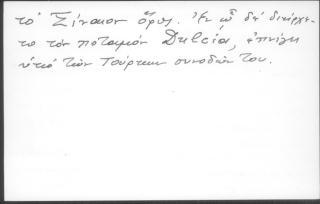 τὸ Σίναιον ὄρος. Ἐν ᾧ δὲ διήρχε-
το τὸν ποταμὸν Dulcia, ἐπνίγη
ὑπὸ τῶν Τούρκων συνοδῶν του.